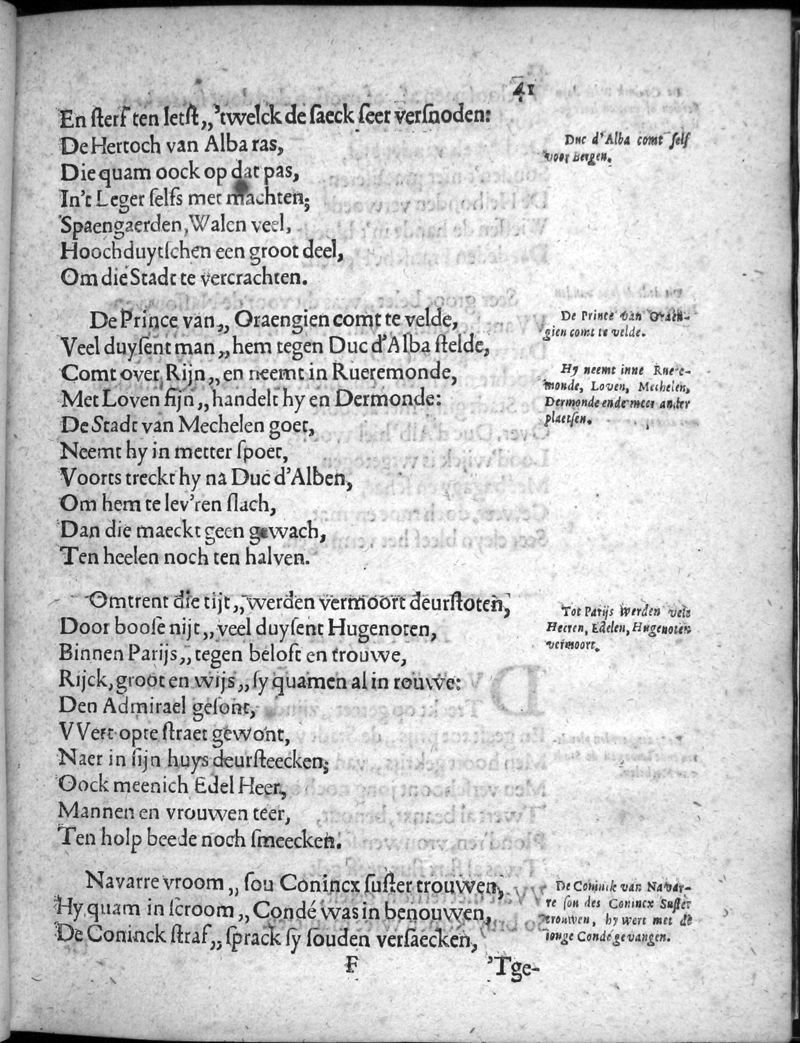 41
En sterf ten letst,,'twelck de saeck seer versnoden:
De Hertoch van Alba ras,
Die quam oock op dat pas,
In't Leger selfs met machten;
Spaengaerden, Walen veel,
Hoochduytschen een groot deel,
Om die Stadt te vercrachten.
Duc d'Alba comt self
voor Bergen.
De Prince van,, Oraengien comt te velde,
Veel duysent man,, hem tegen Duc d'Alba stelde,
Comt over Rijn,, en neemt in Rueremonde,
Met Loven fijn,, handelt hy en Dermonde:
De Stadt van Mechelen goet,
Neemt hy in metter spoet,
Voorts treckt hy na Duc d'Alben,
Om hem te lev'ren slach,
Dan die maeckt geen gewach,
Ten heelen noch ten halven.
De Prince van Oraen-
gien comt te velde.
Hy neemt inne Ruere-
monde, Loven, Mechelen,
Dermonde ende meer ander
plaetsen.
Omtrent die tijt,, werden vermoort deurstoten,
Door boose nijt,, veel duysent Hugenoten,
Binnen Parijs,, tegen beloft en trouwe,
Rijck, groot en wijs,, sy quamen al in rouwe:
Den Admirael gesont,
VVert opte straet gewont,
Naer in sijn huys deursteecken;
Oock meenich Edel Heer,
Mannen en vrouwen teer,
Ten holp beede noch smeecken.
Tot Parijs werden vele
Heeren, Edelen, Hugenoten
vermoort.
Navarre vroom,, sou Conincx suster trouwen,
Hy quam in scroom,, Condé was in benouwen,
De Coninck straf,, sprack sy souden versaecken,
De Coninck van Navar-
re sou des Conincx Suster
trouwen, hy wert met de
jonge Condé gevangen.
F
'Tge-